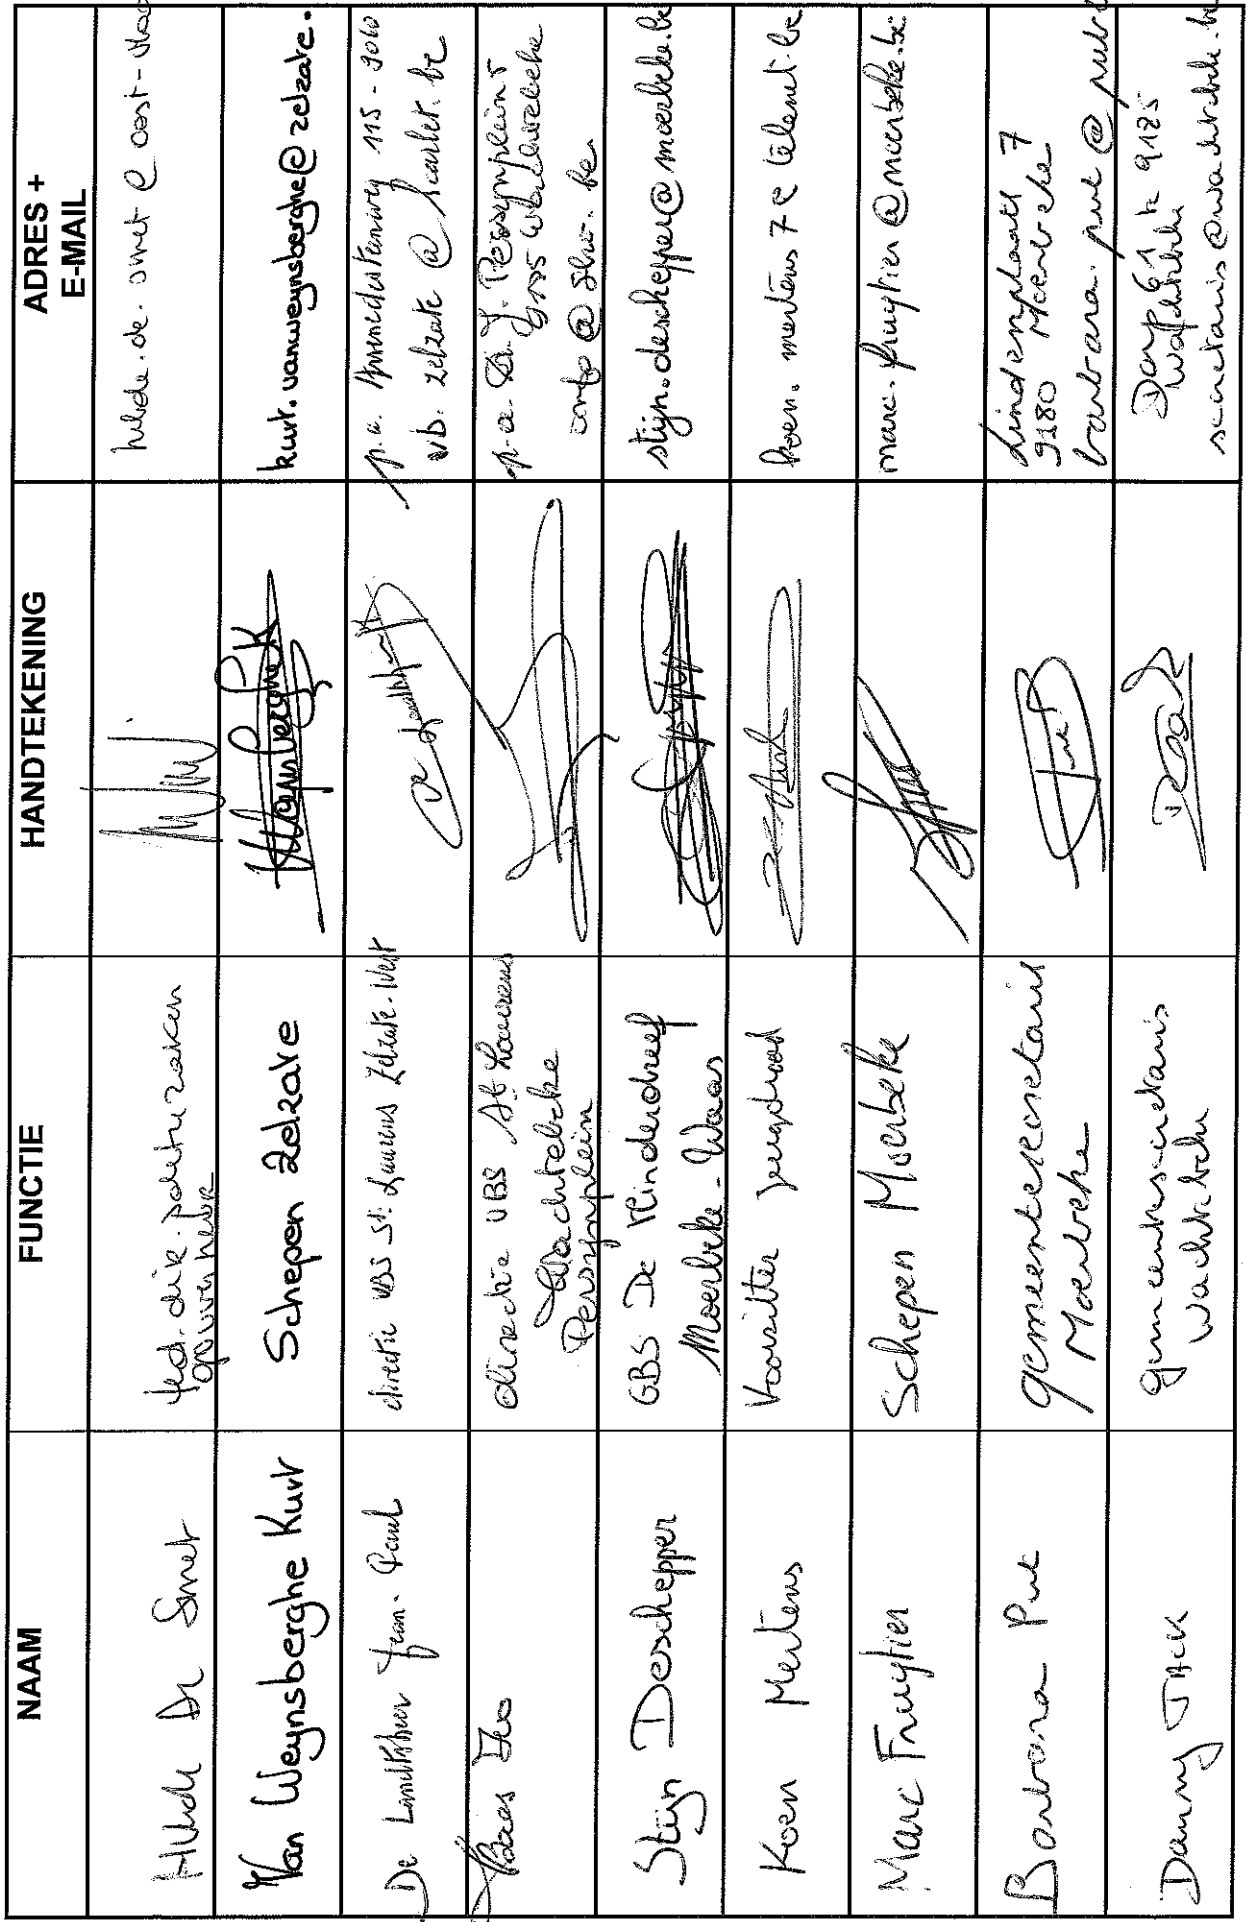 NAAM FUNCTIE HANDTEKENING ADRES +
E-MAIL
De Smet
gouverneur
hilde.de.smet@oost-
Van Weynsberghe Kurt Schepen Zelzate kurt.vanweynsberghe@zelzate.
De Jean-Paul directie VBS St. Laurens Zelzate-West p.a. 115 - 9060
vb.zelzate@scarlet.be
directie VBS St Laurens
Wachtebeke
Persynplein
p.a. Persynplein
Stijn Deschepper GBS De Kinderdreef
Moerbeke-Waas
stijn.deschepper@moerbeke.be
Koen Mertens Voorzitter jeugdraad koen.mertens7@telenet.be
Marc Fruytier Schepen Moerbeke marc.fruytier@moerbeke.be
Barbara Put gemeentesecretaris
Moerbeke
Lindenplaats 7
9180 Moerbeke
barbara.put@publi
Danny Tack gemeentesecretaris
Wachtebeke
Dorp 61 9185
Wachtebeke
secretaris@wachtebeke.be